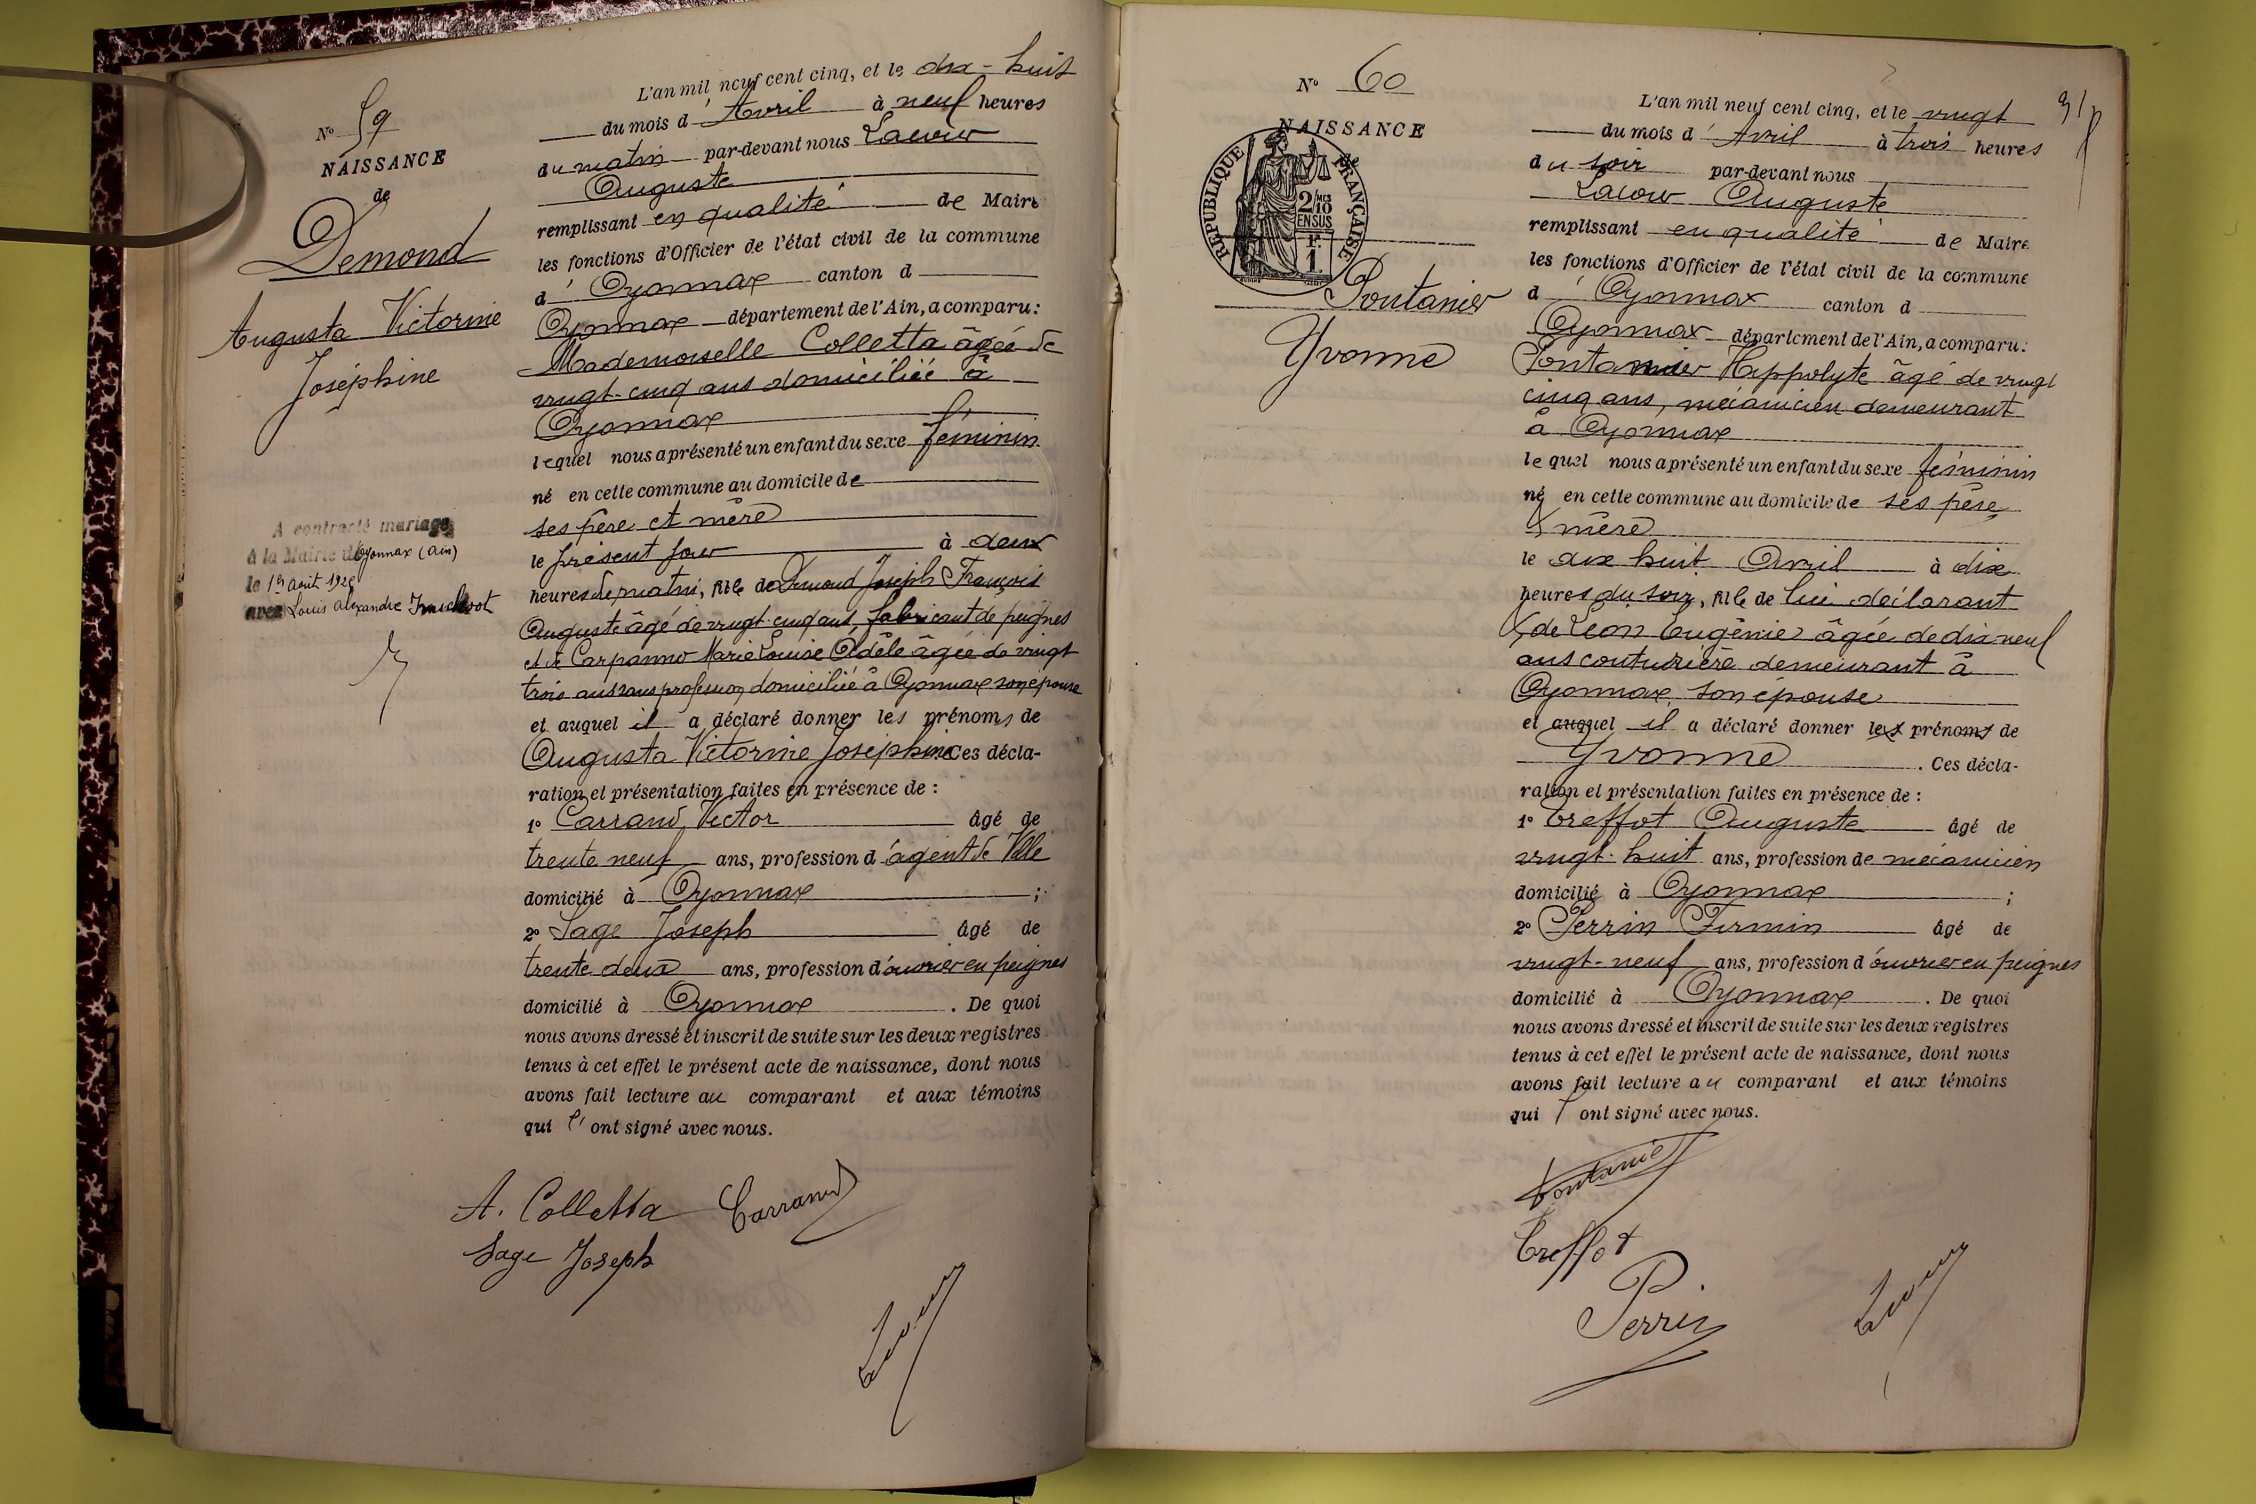 Nº 59
NAISSANCE
de
Demond
Augusta Victorine
Joséphine
A contracté mariage
à la Mairie d'Oyonnax (Ain)
le 1er Août 192
avec Louis Alexandre
L'an mil neuf cent cinq, et le dix-huit
du mois d'Avril à neuf heures
du matin par-devant nous Lacour
Auguste
remplissant en qualité de Maire
les fonctions d'Officier de l'état civil de la commune
d'Oyonnax canton d
Oyonnax département de l'Ain, a comparu:
Mademoiselle Colletta âgée de
vingt-cinq ans domiciliée à
Oyonnax
lequel nous a présenté un enfant du sexe féminin
né en cette commune au domicile de
ses père et mère
le présent jour à deux
heures du matin, fille de Demond Joseph François
Auguste âgé de vingt-cinq ans, fabricant de peignes
et de Carpanno Marie Louise Adèle âgée de vingt
trois ans sans profession domiciliée à Oyonnax son épouse
et auquel il a déclaré donner les prénoms de
Augusta Victorine Joséphine Ces décla-
ration et présentation faites en présence de :
1º Carrand Victor âgé de
trente neuf ans, profession d'agent de Ville
domicilié à Oyonnax ;
2º Sage Joseph âgé de
trente deux ans, profession d'ouvrier en peignes
domicilié à Oyonnax . De quoi
nous avons dressé et inscrit de suite sur les deux registres
tenus à cet effet le présent acte de naissance, dont nous
avons fait lecture au comparant et aux témoins
qui l'ont signé avec nous.
A. Colletta Carrand
Sage Joseph
Lacour
Nº 60
NAISSANCE
de
RÉPUBLIQUE FRANÇAISE
2/10 EN SUS
F. 1
Pontanier
Yvonne
31
L'an mil neuf cent cinq, et le vingt
du mois d'Avril à trois heures
du soir par-devant nous
Lacour Auguste
remplissant en qualité de Maire
les fonctions d'Officier de l'état civil de la commune
d'Oyonnax canton d
Oyonnax département de l'Ain, a comparu:
Pontanier Hippolyte âgé de vingt
cinq ans, mécanicien demeurant
à Oyonnax
lequel nous a présenté un enfant du sexe féminin
né en cette commune au domicile de ses père
& mère
le dix huit Avril à dix
heures du soir, fille de lui déclarant
& de Léon Eugénie âgée de dix neuf
ans couturière demeurant à
Oyonnax, son épouse
et auquel il a déclaré donner les prénoms de
Yvonne . Ces décla-
ration et présentation faites en présence de :
1º Treffot Auguste âgé de
vingt-huit ans, profession de mécanicien
domicilié à Oyonnax ;
2º Perrin Firmin âgé de
vingt-neuf ans, profession d'ouvrier en peignes
domicilié à Oyonnax . De quoi
nous avons dressé et inscrit de suite sur les deux registres
tenus à cet effet le présent acte de naissance, dont nous
avons fait lecture au comparant et aux témoins
qui l'ont signé avec nous.
Pontanier
Treffot
Perrin
Lacour